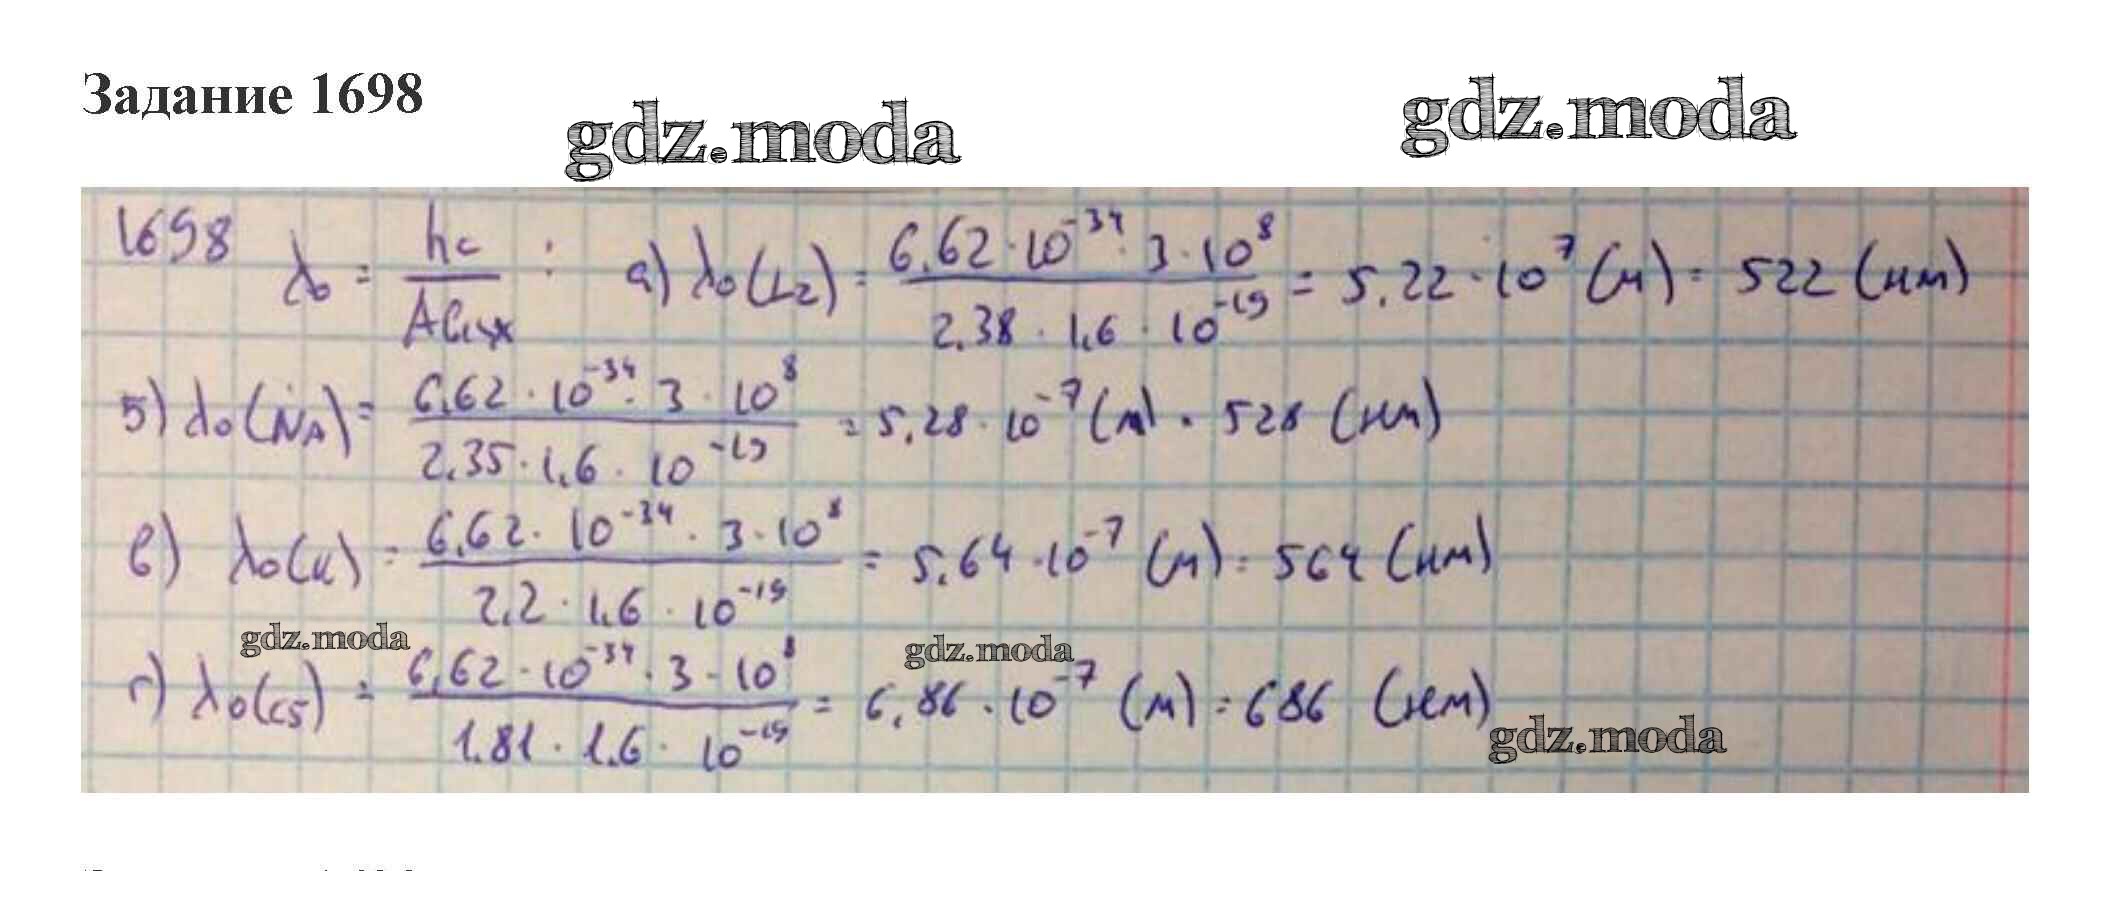 Задание 1698
gdz.moda
gdz.moda
1698 λ₀ = hc / Aвых : а) λ₀(Lz) = 6,62 · 10⁻³⁴ · 3 · 10⁸ / 2,38 · 1,6 · 10⁻¹⁹ = 5,22 · 10⁷ (м) = 522 (нм)
б) λ₀(Na) = 6,62 · 10⁻³⁴ · 3 · 10⁸ / 2,35 · 1,6 · 10⁻¹⁹ = 5,28 · 10⁻⁷ (м) = 528 (нм)
в) λ₀(K) = 6,62 · 10⁻³⁴ · 3 · 10⁸ / 2,2 · 1,6 · 10⁻¹⁹ = 5,64 · 10⁻⁷ (м) = 564 (нм)
gdz.moda
gdz.moda
г) λ₀(Cs) = 6,62 · 10⁻³⁴ · 3 · 10⁸ / 1,81 · 1,6 · 10⁻¹⁹ = 6,86 · 10⁻⁷ (м) = 686 (нм)
gdz.moda